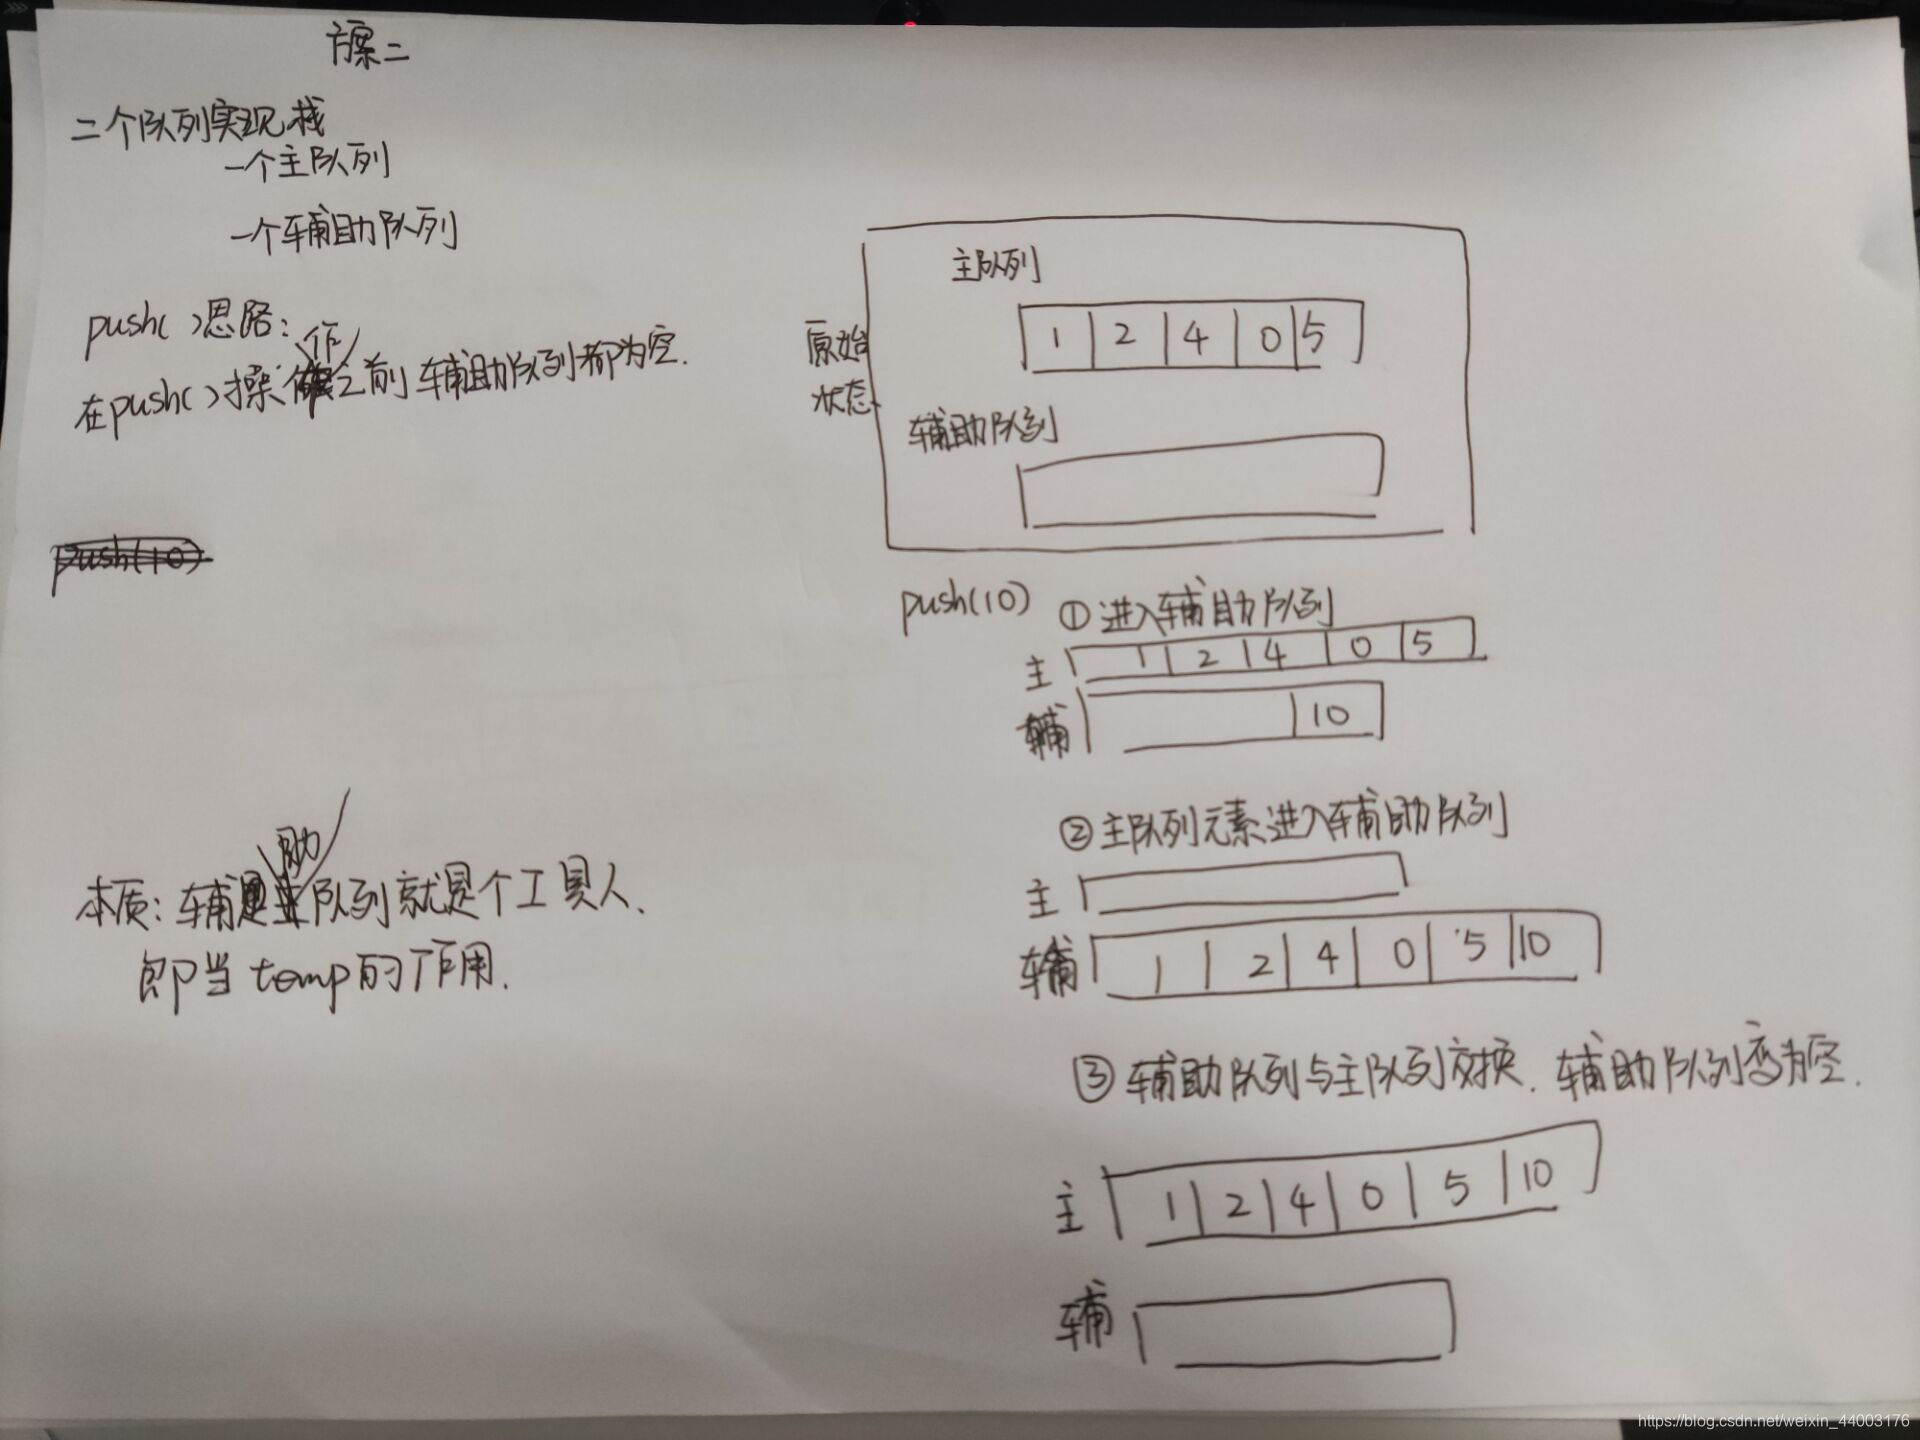 方案二
二个队列实现栈
一个主队列
一个辅助队列
push( )思路:
在push( )操作之前 辅助队列都为空.
push(10)
本质: 辅助队列就是个工具人.
即当temp的作用.
原始
状态
主队列
1 2 4 0 5
辅助队列
push(10) ① 进入辅助队列
主 1 2 4 0 5
辅 10
② 主队列元素进入辅助队列
主
辅 1 2 4 0 5 10
③ 辅助队列与主队列交换. 辅助队列变为空.
主 1 2 4 0 5 10
辅
https://blog.csdn.net/weixin_44003176